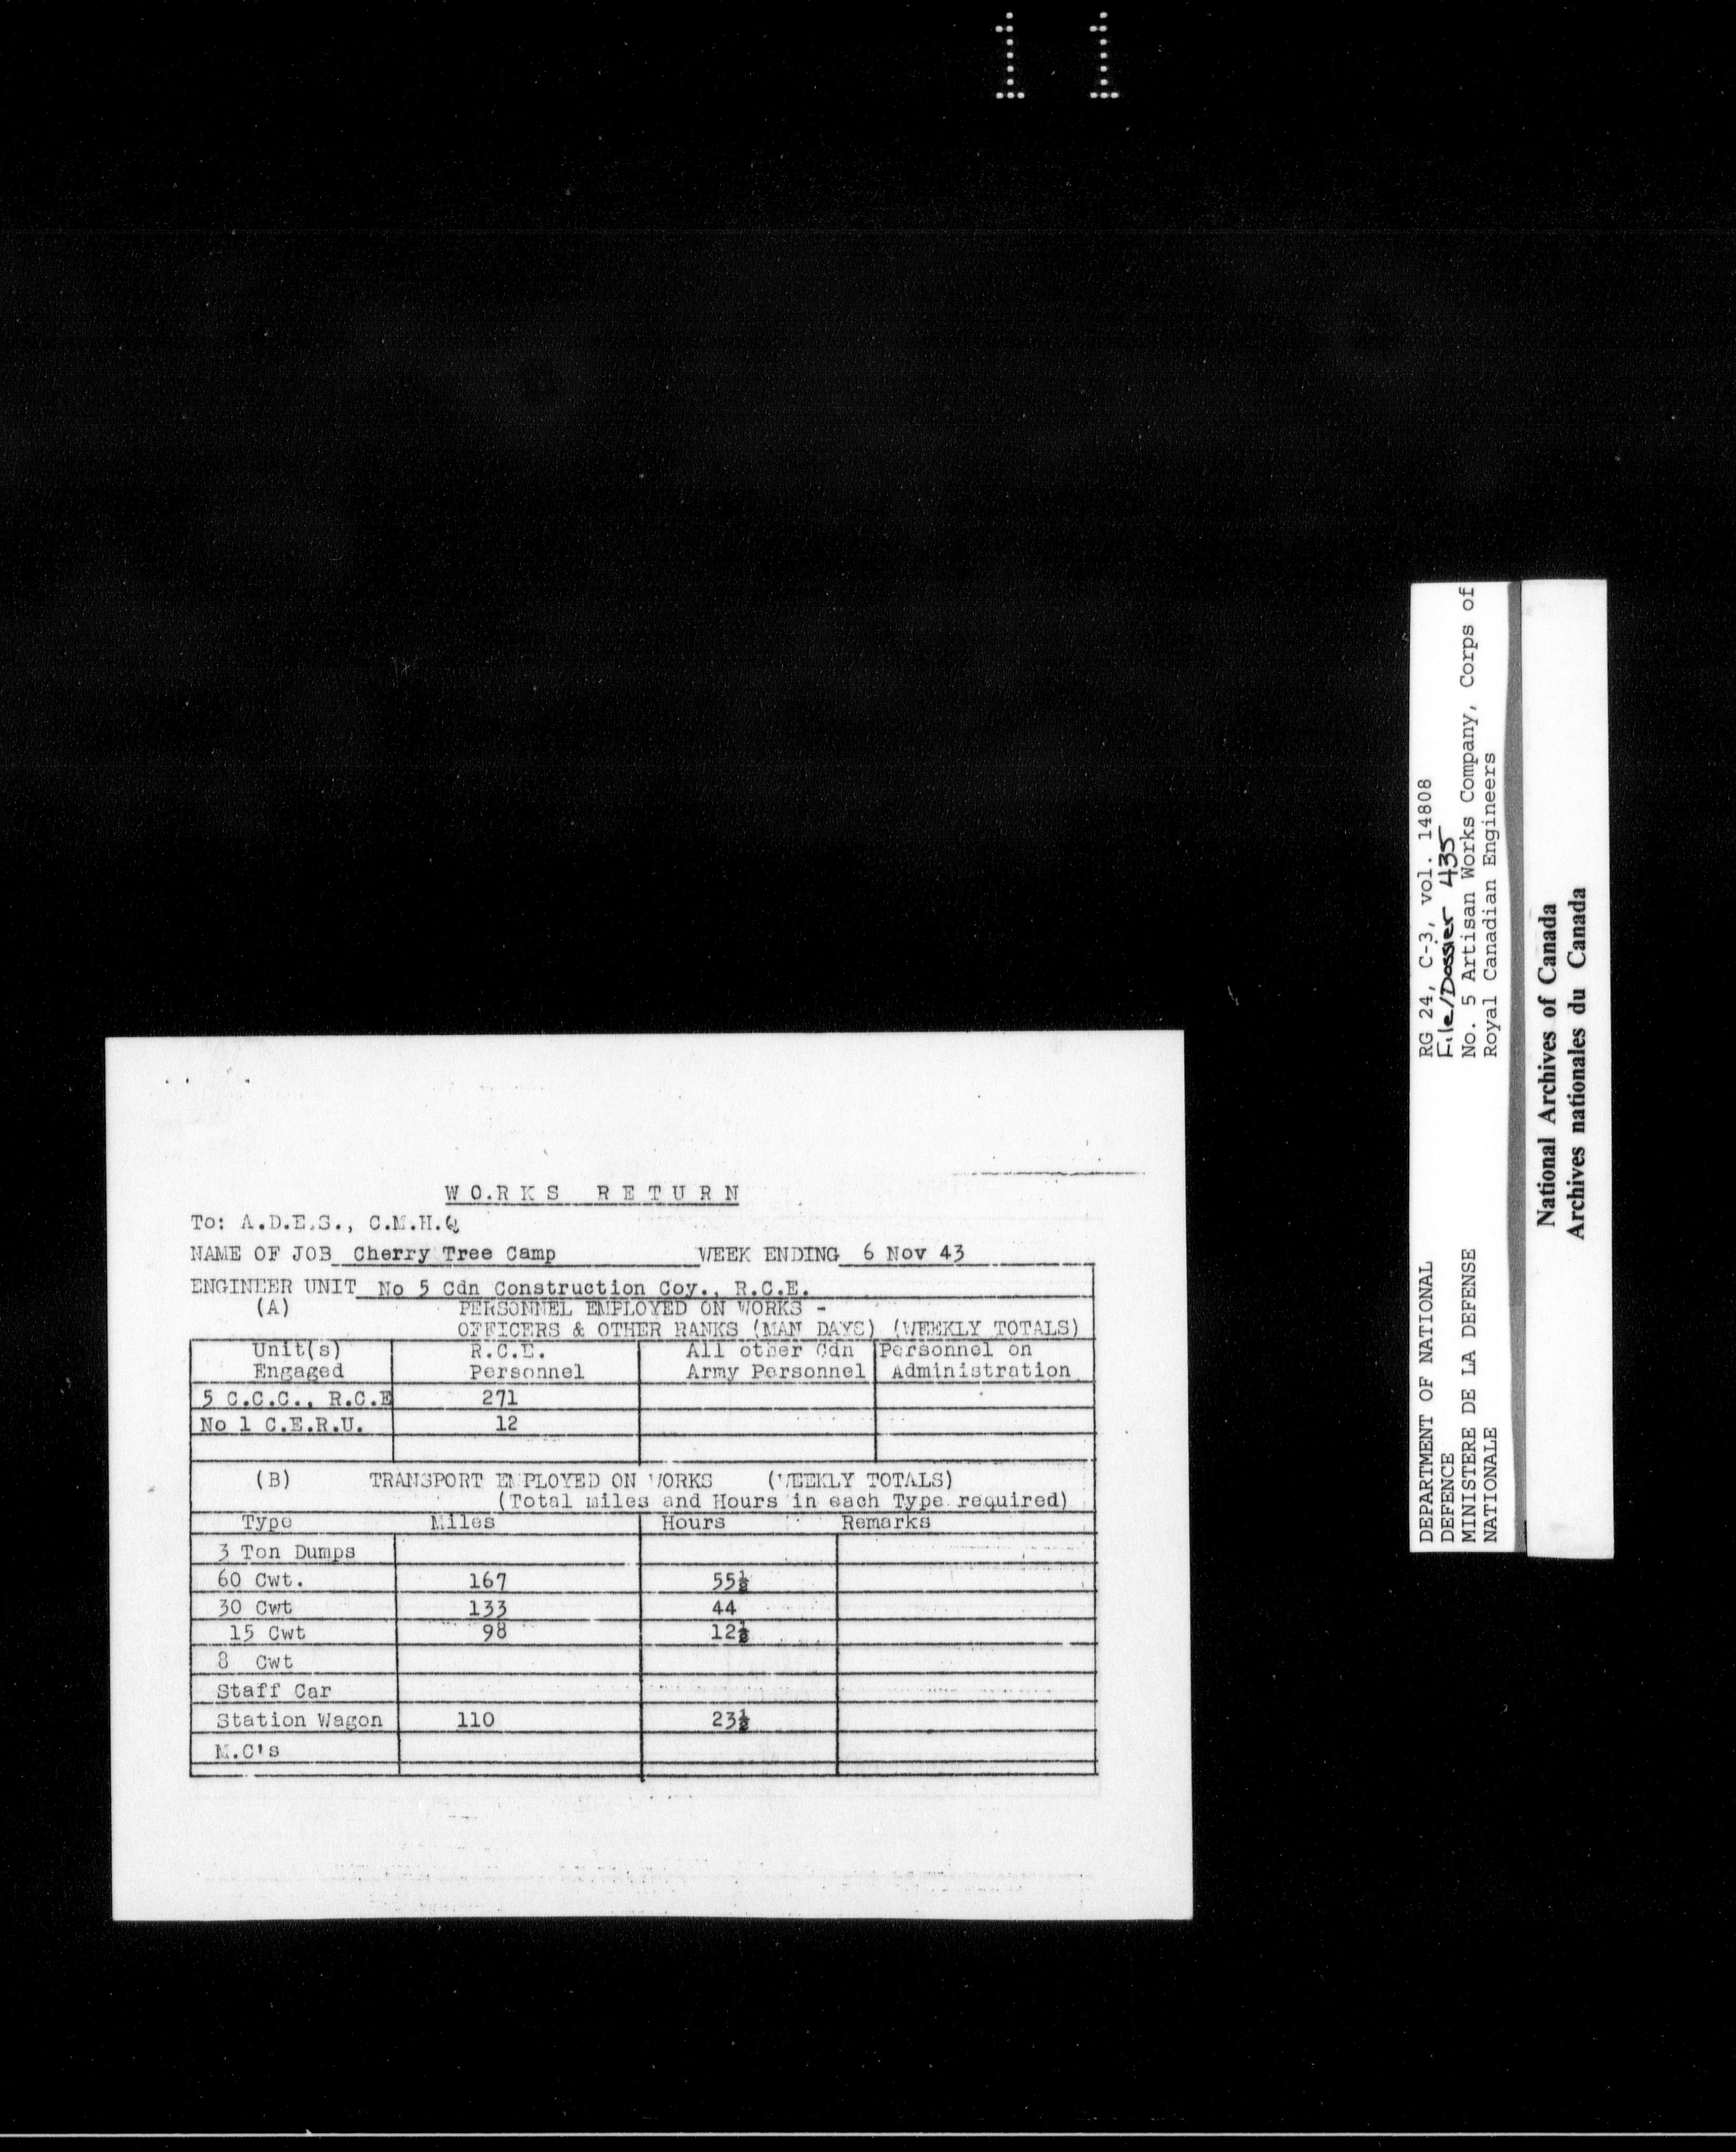 11
WO.RKS RETURN
To: A.D.E.S., C.M.H.Q
NAME OF JOB Cherry Tree Camp WEEK ENDING 6 Nov 43
ENGINEER UNIT No 5 Cdn Construction Coy., R.C.E.
(A) PERSONNEL EMPLOYED ON WORKS -
OFFICERS & OTHER RANKS (MAN DAYS) (WEEKLY TOTALS)
Unit(s) R.C.E. All other Cdn Personnel on
Engaged Personnel Army Personnel Administration
5 C.C.C., R.C.E 271
No 1 C.E.R.U. 12
(B) TRANSPORT EMPLOYED ON WORKS (WEEKLY TOTALS)
(Total miles and Hours in each Type required)
Type Miles Hours Remarks
3 Ton Dumps
60 Cwt. 167 55½
30 Cwt 133 44
15 Cwt 98 12½
8 Cwt
Staff Car
Station Wagon 110 23½
M.C's
DEPARTMENT OF NATIONAL RG 24, C-3, vol. 14808
DEFENCE File/Dossier 435
MINISTERE DE LA DEFENSE No. 5 Artisan Works Company, Corps of
NATIONALE Royal Canadian Engineers
National Archives of Canada
Archives nationales du Canada